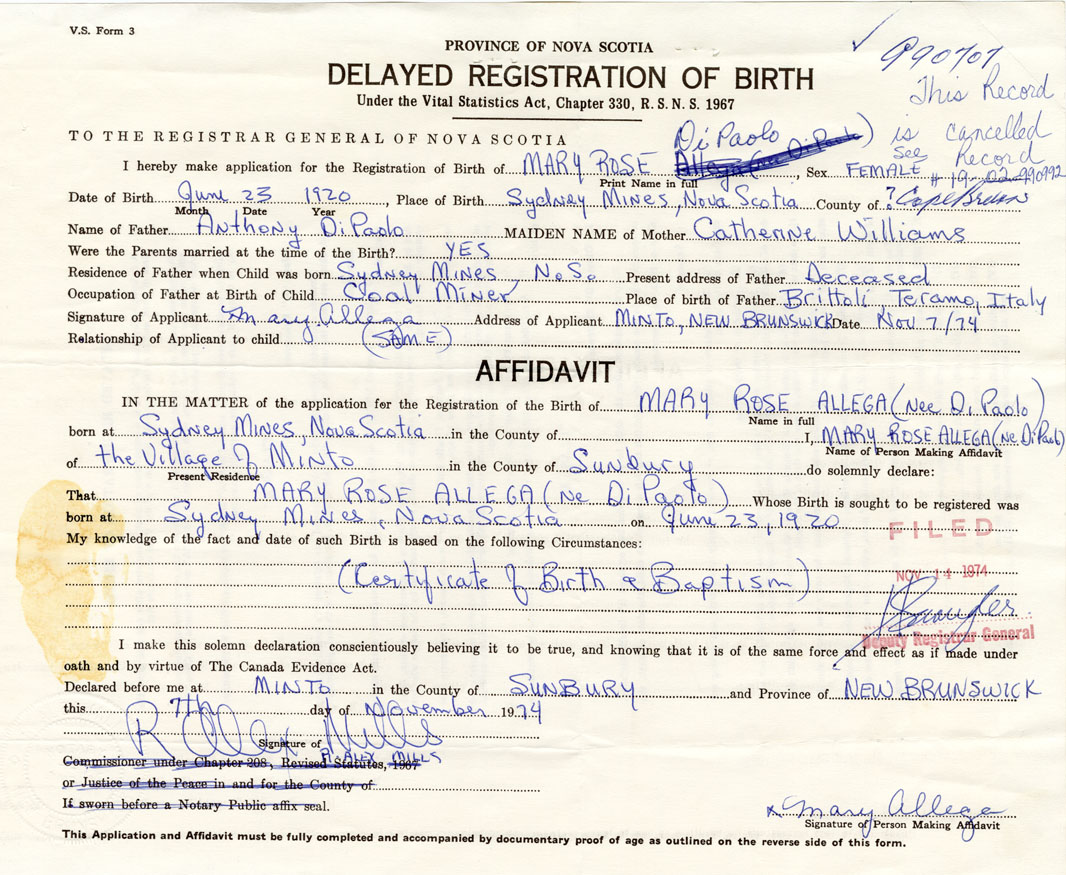 V.S. Form 3
PROVINCE OF NOVA SCOTIA
DELAYED REGISTRATION OF BIRTH
Under the Vital Statistics Act, Chapter 330, R. S. N. S. 1967
990707
This Record
is cancelled
See Record
# 19-02-990992
TO THE REGISTRAR GENERAL OF NOVA SCOTIA
I hereby make application for the Registration of Birth of MARY ROSE DiPaolo Allega (nee DiPaolo), Sex FEMALE
Print Name in full
Date of Birth June 23 1920, Place of Birth Sydney Mines, Nova Scotia County of ? Cape Breton
Month Date Year
Name of Father Anthony DiPaolo MAIDEN NAME of Mother Catherine Williams
Were the Parents married at the time of the Birth? YES
Residence of Father when Child was born Sydney Mines, N.S. Present address of Father Deceased
Occupation of Father at Birth of Child Coal Miner Place of birth of Father Brittoli, Teramo, Italy
Signature of Applicant Mary Allega Address of Applicant MINTO, NEW BRUNSWICK Date Nov 7/74
Relationship of Applicant to child (SAME)
AFFIDAVIT
IN THE MATTER of the application for the Registration of the Birth of MARY ROSE ALLEGA (Nee DiPaolo)
Name in full
born at Sydney Mines, Nova Scotia in the County of I, MARY ROSE ALLEGA (ne DiPaolo)
Name of Person Making Affidavit
of the Village of Minto in the County of Sunbury do solemnly declare:
Present Residence
That MARY ROSE ALLEGA (ne DiPaolo) Whose Birth is sought to be registered was
born at Sydney Mines, Nova Scotia on June 23, 1920
FILED
My knowledge of the fact and date of such Birth is based on the following Circumstances:
(Certificate of Birth & Baptism)
NOV 14 1974
Deputy Registrar General
I make this solemn declaration conscientiously believing it to be true, and knowing that it is of the same force and effect as if made under
oath and by virtue of The Canada Evidence Act.
Declared before me at MINTO in the County of SUNBURY and Province of NEW BRUNSWICK
this 7th day of November 1974
R Alex Mills
Signature of
R. ALEX MILLS
Commissioner under Chapter 208, Revised Statutes, 1967
or Justice of the Peace in and for the County of
If sworn before a Notary Public affix seal.
x Mary Allega
Signature of Person Making Affidavit
This Application and Affidavit must be fully completed and accompanied by documentary proof of age as outlined on the reverse side of this form.